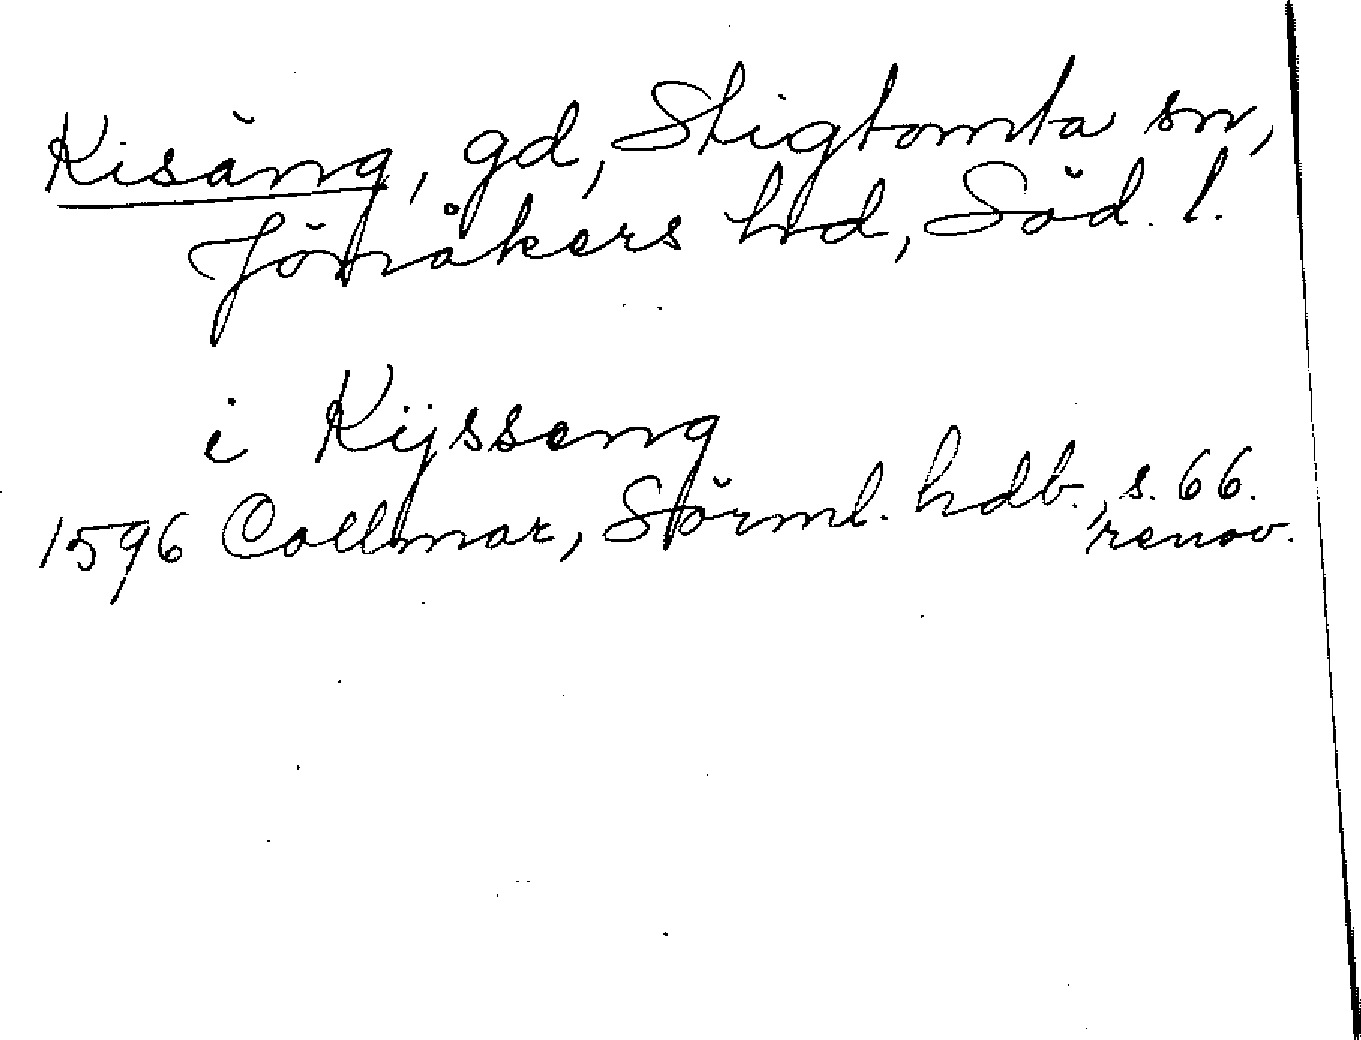 Kisäng, gd, Stigtomta sn,
Jönåkers hd, Söd. l.
i Kijsseng
1596 Collmar, Sörml. hdb., s. 66.
renov.